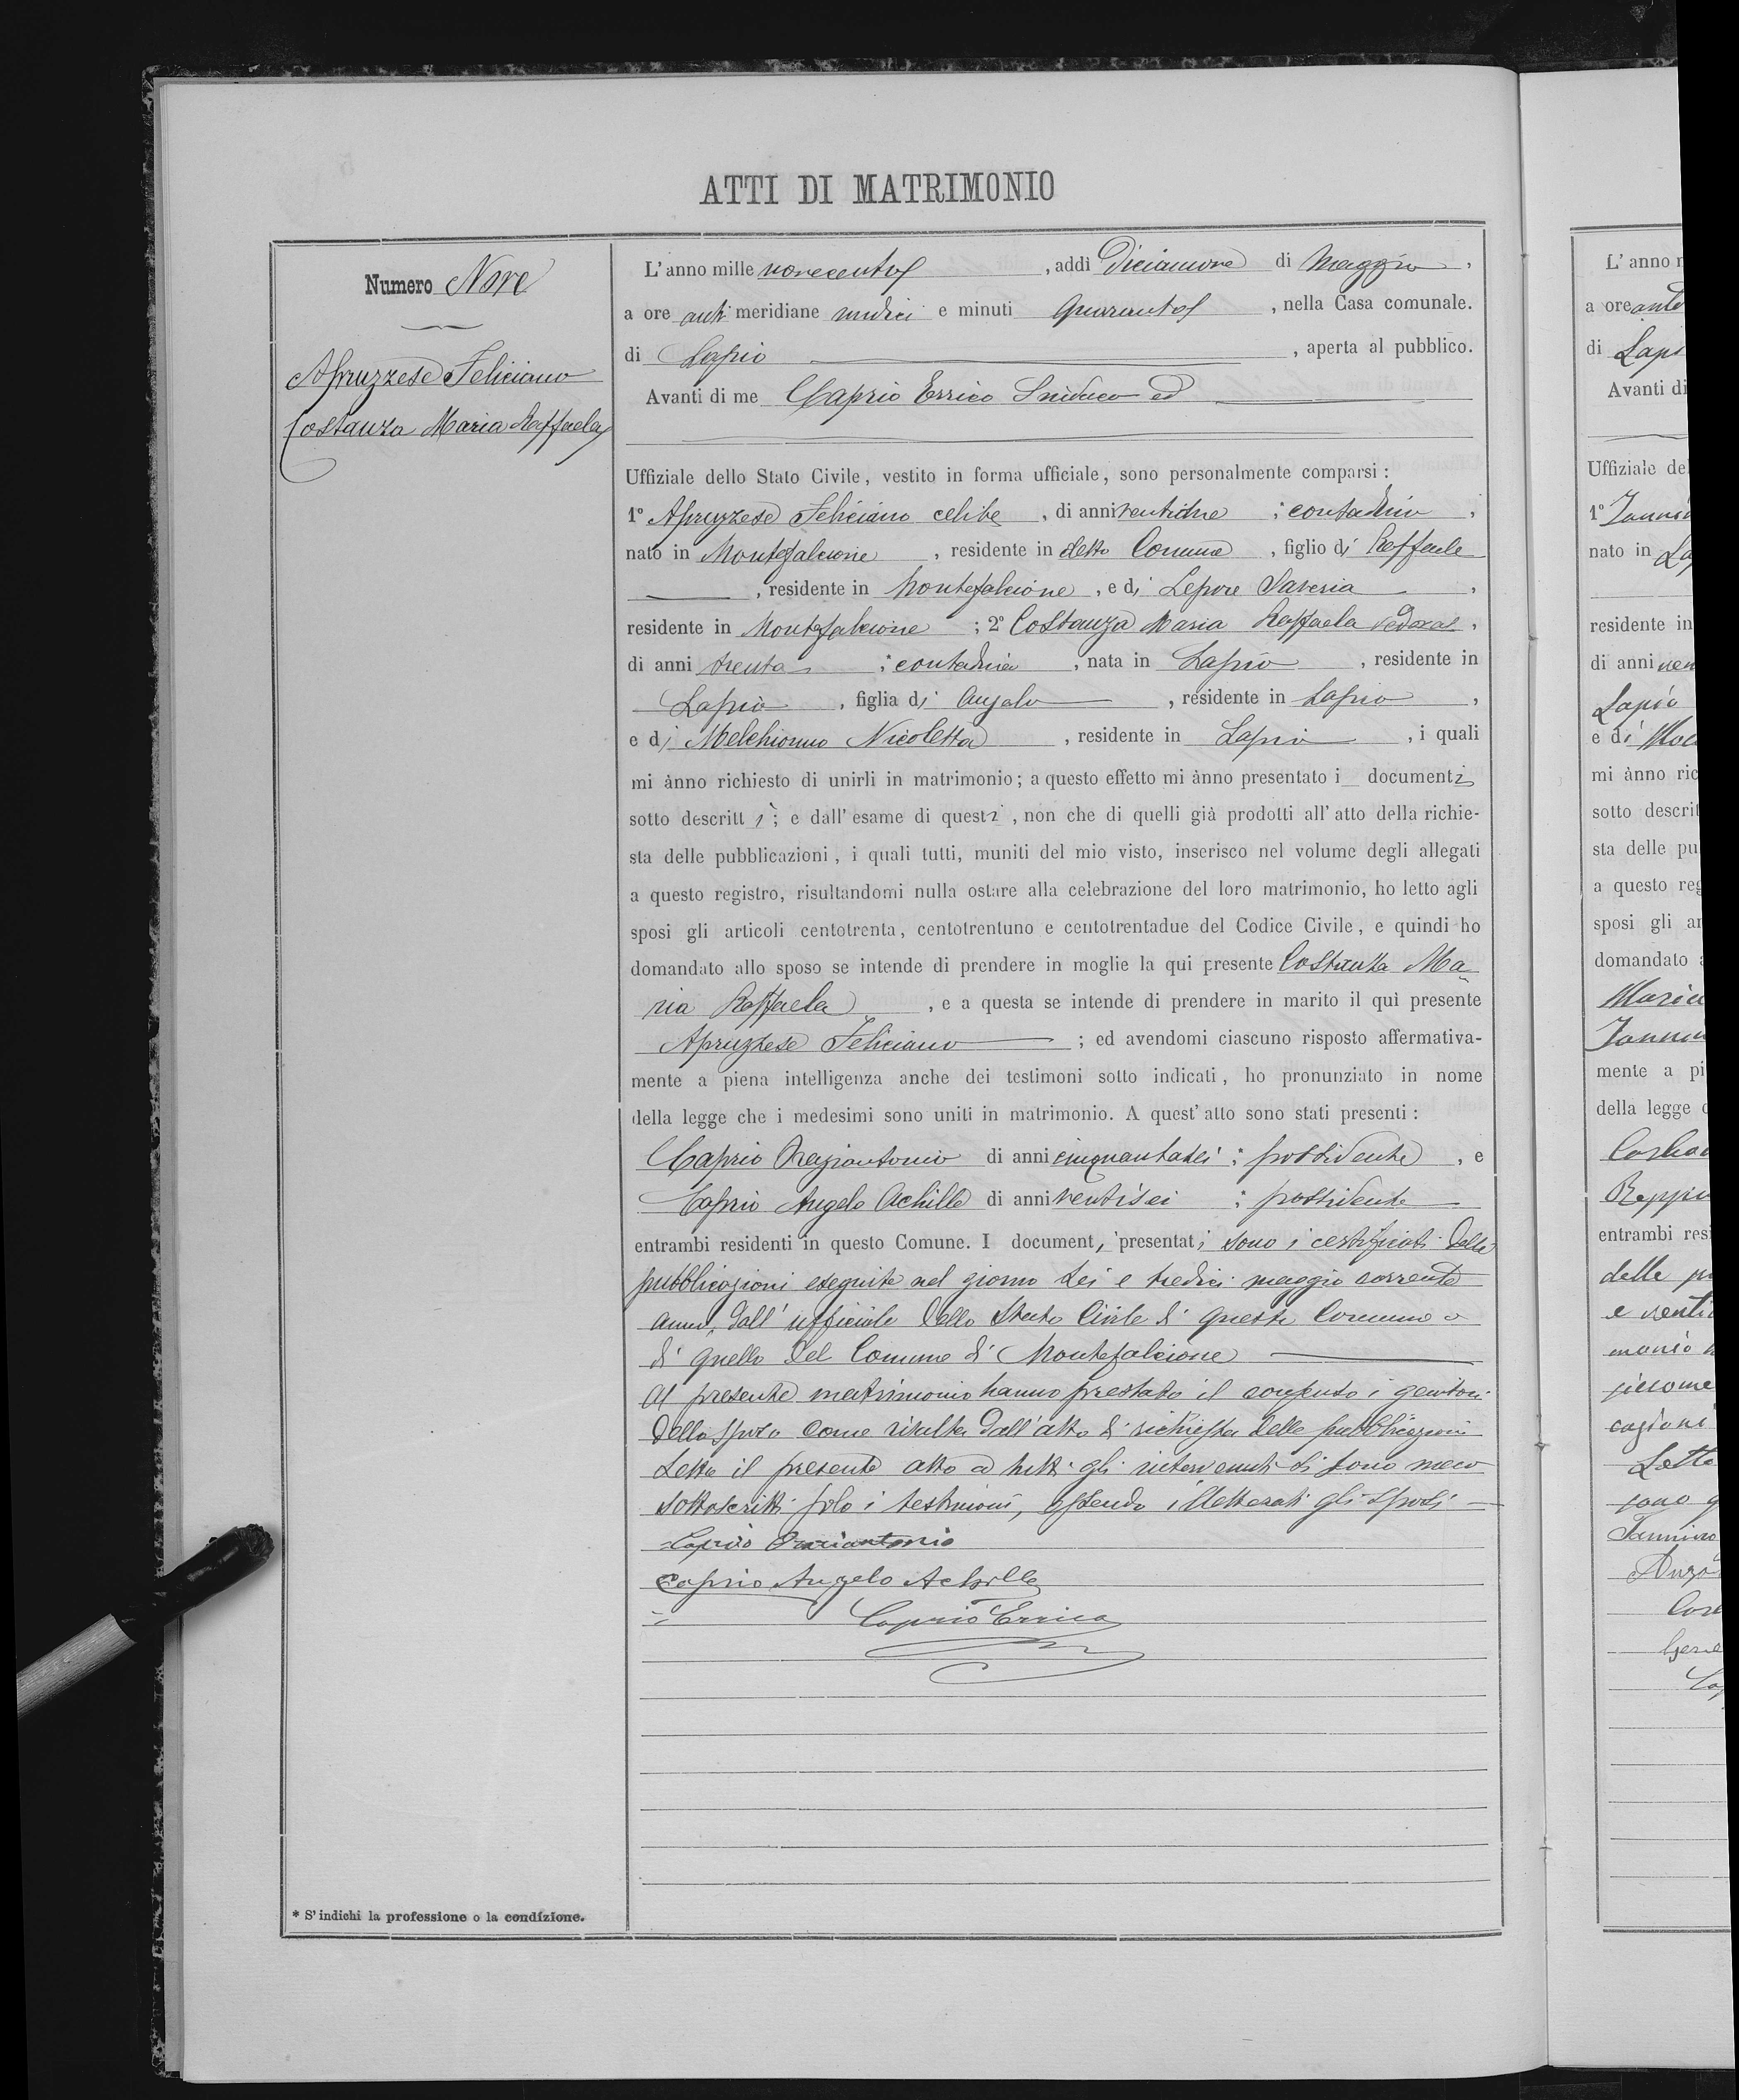 ATTI DI MATRIMONIO
Numero Nove
Apruzzese Feliciano
Costanza Maria Raffaela
* S'indichi la professione o la condizione.
L'anno mille novecento, addì Diciannove di Maggio,
a ore anti meridiane undici e minuti quaranta, nella Casa comunale.
di Lapio, aperta al pubblico.
Avanti di me Caprio Errico Sindaco ed
Uffiziale dello Stato Civile, vestito in forma ufficiale, sono personalmente comparsi:
1º Apruzzese Feliciano celibe, di anni ; contadino,
nato in Montefalcione, residente in detto Comune, figlio di Raffaele
, residente in Montefalcione, e di Lepore Saveria,
residente in Montefalcione; 2º Costanza Maria Raffaela vedova,
di anni trenta; contadina, nata in Lapio, residente in
Lapio, figlia di Angelo, residente in Lapio,
e di Melchionno Nicoletta, residente in Lapio, i quali
mi ànno richiesto di unirli in matrimonio; a questo effetto mi ànno presentato i documenti
sotto descritti; e dall'esame di questi, non che di quelli già prodotti all'atto della richie-
sta delle pubblicazioni, i quali tutti, muniti del mio visto, inserisco nel volume degli allegati
a questo registro, risultandomi nulla ostare alla celebrazione del loro matrimonio, ho letto agli
sposi gli articoli centotrenta, centotrentuno e centotrentadue del Codice Civile, e quindi ho
domandato allo sposo se intende di prendere in moglie la qui presente Costanza Ma
ria Raffaela, e a questa se intende di prendere in marito il quì presente
Apruzzese Feliciano; ed avendomi ciascuno risposto affermativa-
mente a piena intelligenza anche dei testimoni sotto indicati, ho pronunziato in nome
della legge che i medesimi sono uniti in matrimonio. A quest'atto sono stati presenti:
Caprio Oraziantonio di anni cinquantasei; possidente, e
Caprio Angelo Achille di anni ventisei; possidente
entrambi residenti in questo Comune. I documenti presentati sono i certificati delle
pubblicazioni eseguite nel giorno sei e tredici maggio corrente
anno, dall'ufficiale dello Stato Civile di questo Comune e
di quello del Comune di Montefalcione
Al presente matrimonio hanno prestato il consenso i genitori
dello sposo come risulta dall'atto di richiesta delle pubblicazioni
Letto il presente atto a tutti gli intervenuti si sono meco
sottoscritti solo i testimoni, essendo illetterati gli sposi
Caprio Oraziantonio
Caprio Angelo Achille
Caprio Errico
L'anno
a ore anti
di
Avanti di
Uffiziale de
1º
nato in
residente in
di anni
Lapio
e di
mi ànno ric
sotto descrit
sta delle pu
a questo reg
sposi gli ar
domandato
Maria
mente a pi
della legge
entrambi resi
delle
e
Letto